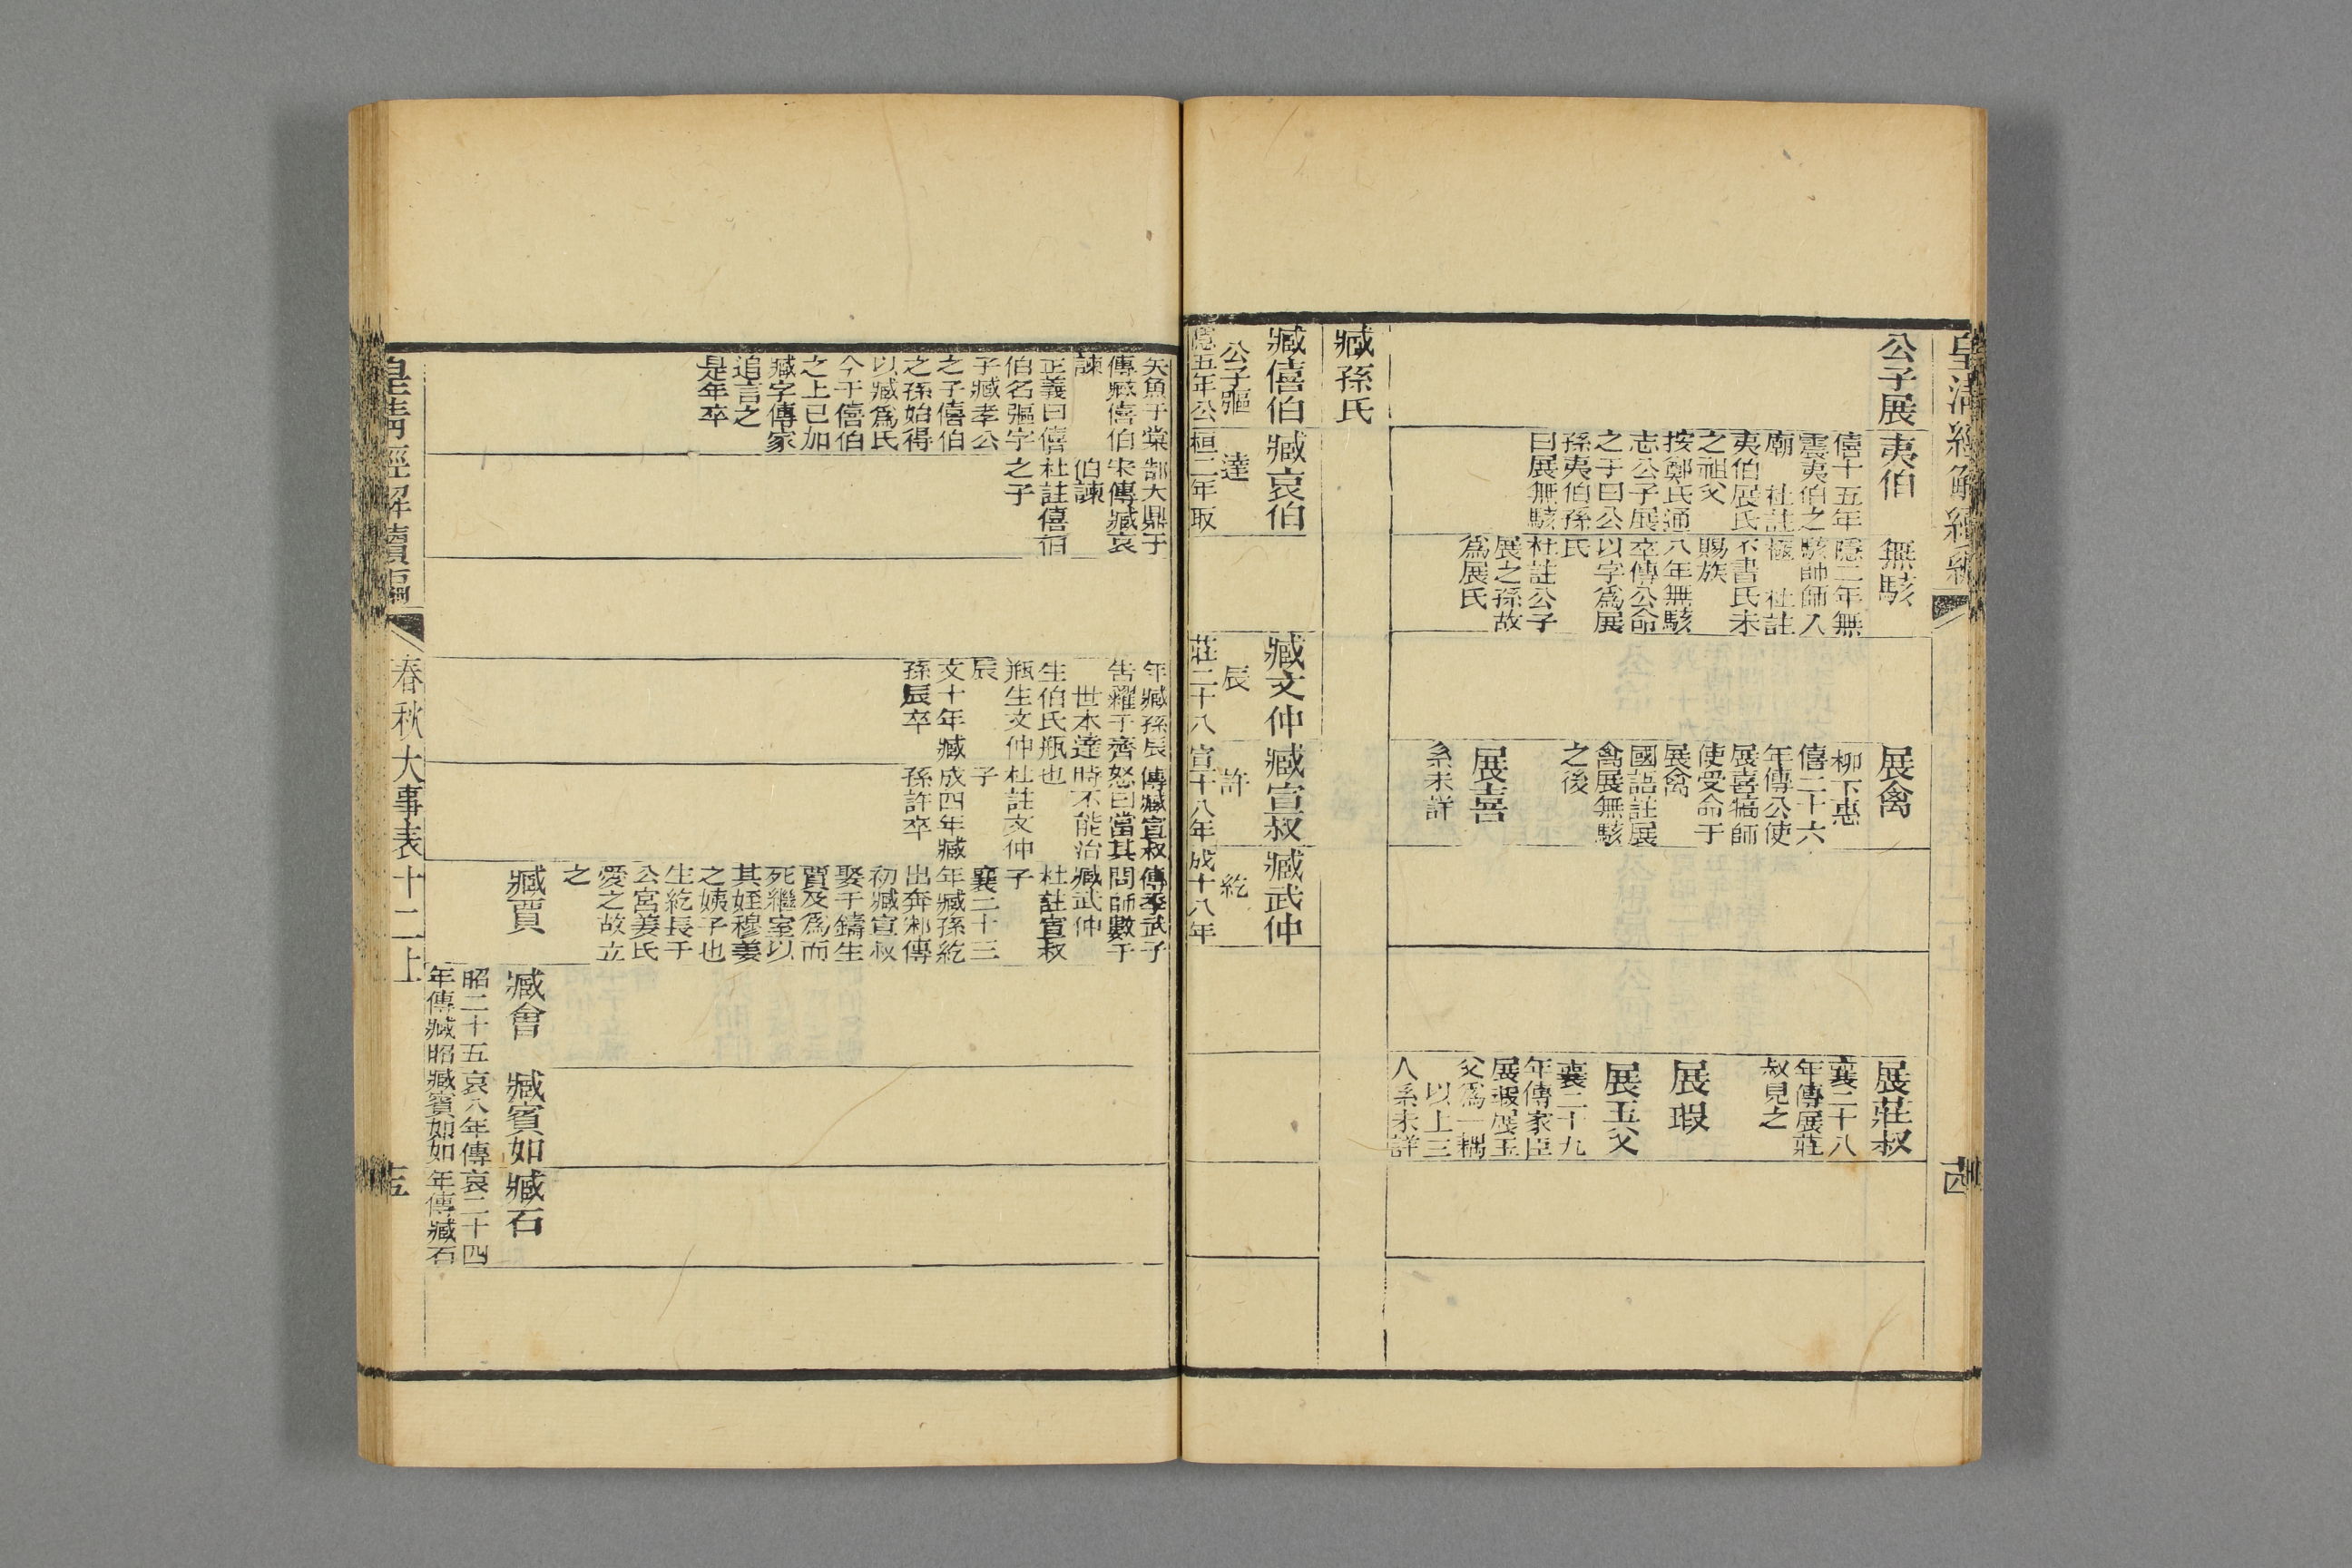 皇清經解續編
公子展
夷伯
僖十五年
震夷伯之
廟 杜註
夷伯展氏
之祖父
按鄭氏通
志公子展
之子曰公
孫夷伯孫
曰展無駭
無駭
隱二年無
駭帥師入
極 杜註
不書氏未
賜族
八年無駭
卒傳公命
以字爲展
氏
杜註公子
展之孫故
爲展氏
展禽
柳下惠
僖二十六
年傳公使
展喜犒師
使受命于
展禽
國語註展
禽展無駭
之後
展喜
系未詳
展莊叔
襄二十八
年傳展莊
叔見之
展瑕
展玉父
襄二十九
年傳家臣
展瑕展玉
父爲一耦
以上三
人系未詳
臧孫氏
臧僖伯
公子彄
隱五年公
臧哀伯
達
桓二年取
臧文仲
辰
莊二十八
臧宣叔
許
宣十八年
臧武仲
紇
成十八年
矢魚于棠
傳臧僖伯
諫
正義曰僖
伯名彄字
子臧孝公
之子僖伯
之孫始得
以臧爲氏
今于僖伯
之上已加
臧字傳家
追言之
是年卒
郜大鼎于
宋傳臧哀
伯諫
杜註僖伯
之子
年臧孫辰
告糴于齊
世本達
生伯氏瓶
瓶生文仲
辰
文十年臧
孫辰卒
傳臧宣叔
怒曰當其
時不能治
也
杜註文仲
子
成四年臧
孫許卒
傳季武子
問師數于
臧武仲
杜註宣叔
子
襄二十三
年臧孫紇
出奔邾傳
初臧宣叔
娶于鑄生
賈及爲而
死繼室以
其姪穆姜
之姨子也
生紇長于
公宮姜氏
愛之故立
之
臧賈
臧會
昭二十五
年傳臧昭
臧賓如
哀八年傳
臧賓如如
臧石
哀二十四
年傳臧石
皇清經解續編
春秋大事表十二上